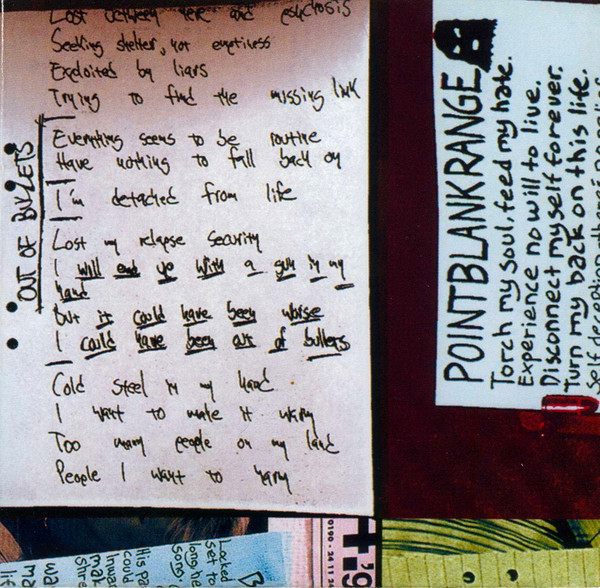 Lost between here and psychosis
Seeking shelter, not emptiness
Exploited by liars
Trying to find the missing link
OUT OF BULLETS
Everything seems to be routine
Have nothing to fall back on
I'm detached from life
Lost my relapse security
I will end up with a gun in my
hand
But it could have been worse
I could have been out of bullets
Cold steel in my hand
I want to make it warm
Too many people on my land
People I want to harm
POINTBLANKRANGE
Torch my soul, feed my hate.
Experience no will to live.
Disconnect myself forever.
Turn my back on this life.
Self deception, there's no relief
Locked
Set to
song,
His
could